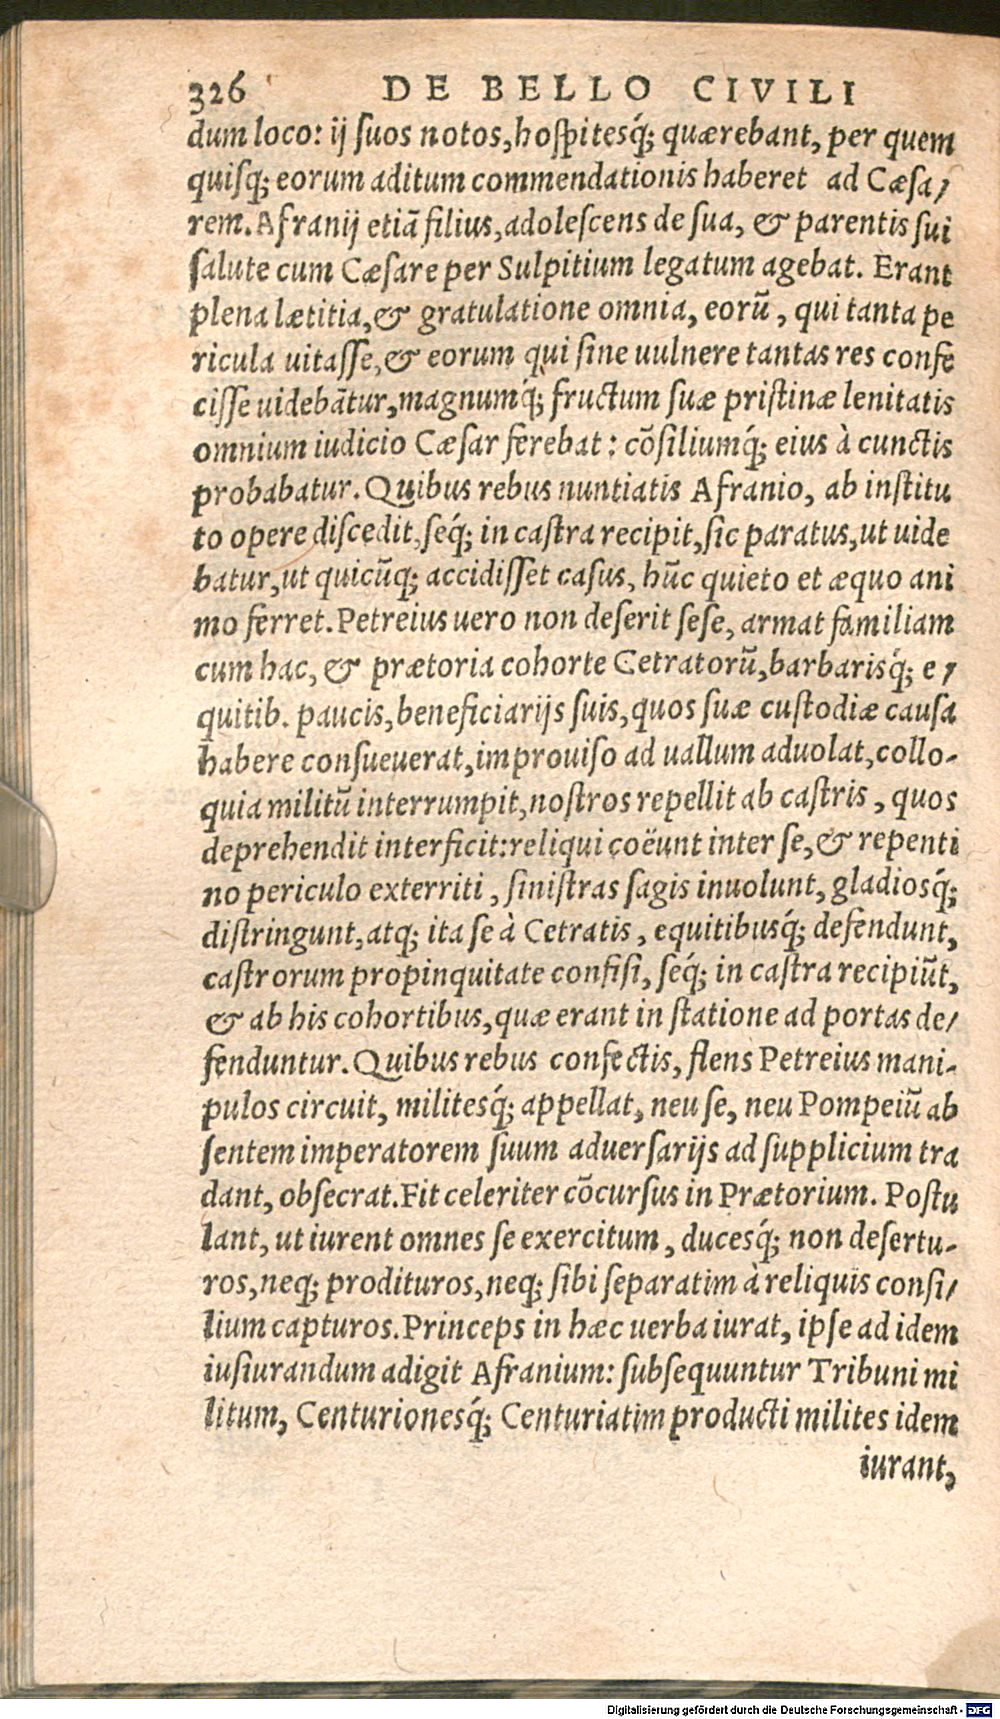 326 DE BELLO CIVILI
dum loco: ij ſuos notos, hoſpitesq́; quærebant, per quem
quiſq; eorum aditum commendationis haberet ad Cæſa/
rem. Afranij etiã filius, adoleſcens de sua, & parentis ſui
ſalute cum Cæſare per Sulpitium legatum agebat. Erant
plena lætitia, & gratulatione omnia, eorũ, qui tanta pe
ricula uitaſſe, & eorum qui ſine uulnere tantas res confe
ciſſe uidebãtur, magnumq́; fructum ſuæ priſtinæ lenitatis
omnium iudicio Cæſar ferebat: cõſiliumq́; eius à cunctis
probabatur. Quibus rebus nuntiatis Afranio, ab inſtitu
to opere diſcedit, ſeq́; in caſtra recipit, ſic paratus, ut uide
batur, ut quicũq; accidiſſet caſus, hũc quieto et æquo ani
mo ferret. Petreius uero non deſerit ſeſe, armat familiam
cum hac, & prætoria cohorte Cetratorũ, barbarisq́; e/
quitib. paucis, beneficiarijs ſuis, quos ſuæ cuſtodiæ cauſa
habere conſueuerat, improuiſo ad uallum aduolat, collo-
quia militũ interrumpit, noſtros repellit ab caſtris, quos
deprehendit interficit: reliqui coëunt inter ſe, & repenti
no periculo exterriti, ſiniſtras ſagis inuolunt, gladiosq́;
diſtringunt, atq; ita ſe à Cetratis, equitibusq́; defendunt,
caſtrorum propinquitate confiſi, ſeq́; in caſtra recipiũt,
& ab his cohortibus, quæ erant in ſtatione ad portas de/
fenduntur. Quibus rebus confectis, flens Petreius mani-
pulos circuit, militesq́; appellat, neu ſe, neu Pompeiũ ab
ſentem imperatorem ſuum aduerſarijs ad ſupplicium tra
dant, obſecrat. Fit celeriter cõcurſus in Prætorium. Poſtu
lant, ut iurent omnes ſe exercitum, ducesq́; non deſertu-
ros, neq; prodituros, neq; ſibi ſeparatim à reliquis conſi/
lium capturos. Princeps in hæc uerba iurat, ipſe ad idem
iuſiurandum adigit Afranium: ſubſequuntur Tribuni mi
litum, Centurionesq́; Centuriatim producti milites idem
iurant,
Digitalisierung gefördert durch die Deutsche Forschungsgemeinschaft - DFG